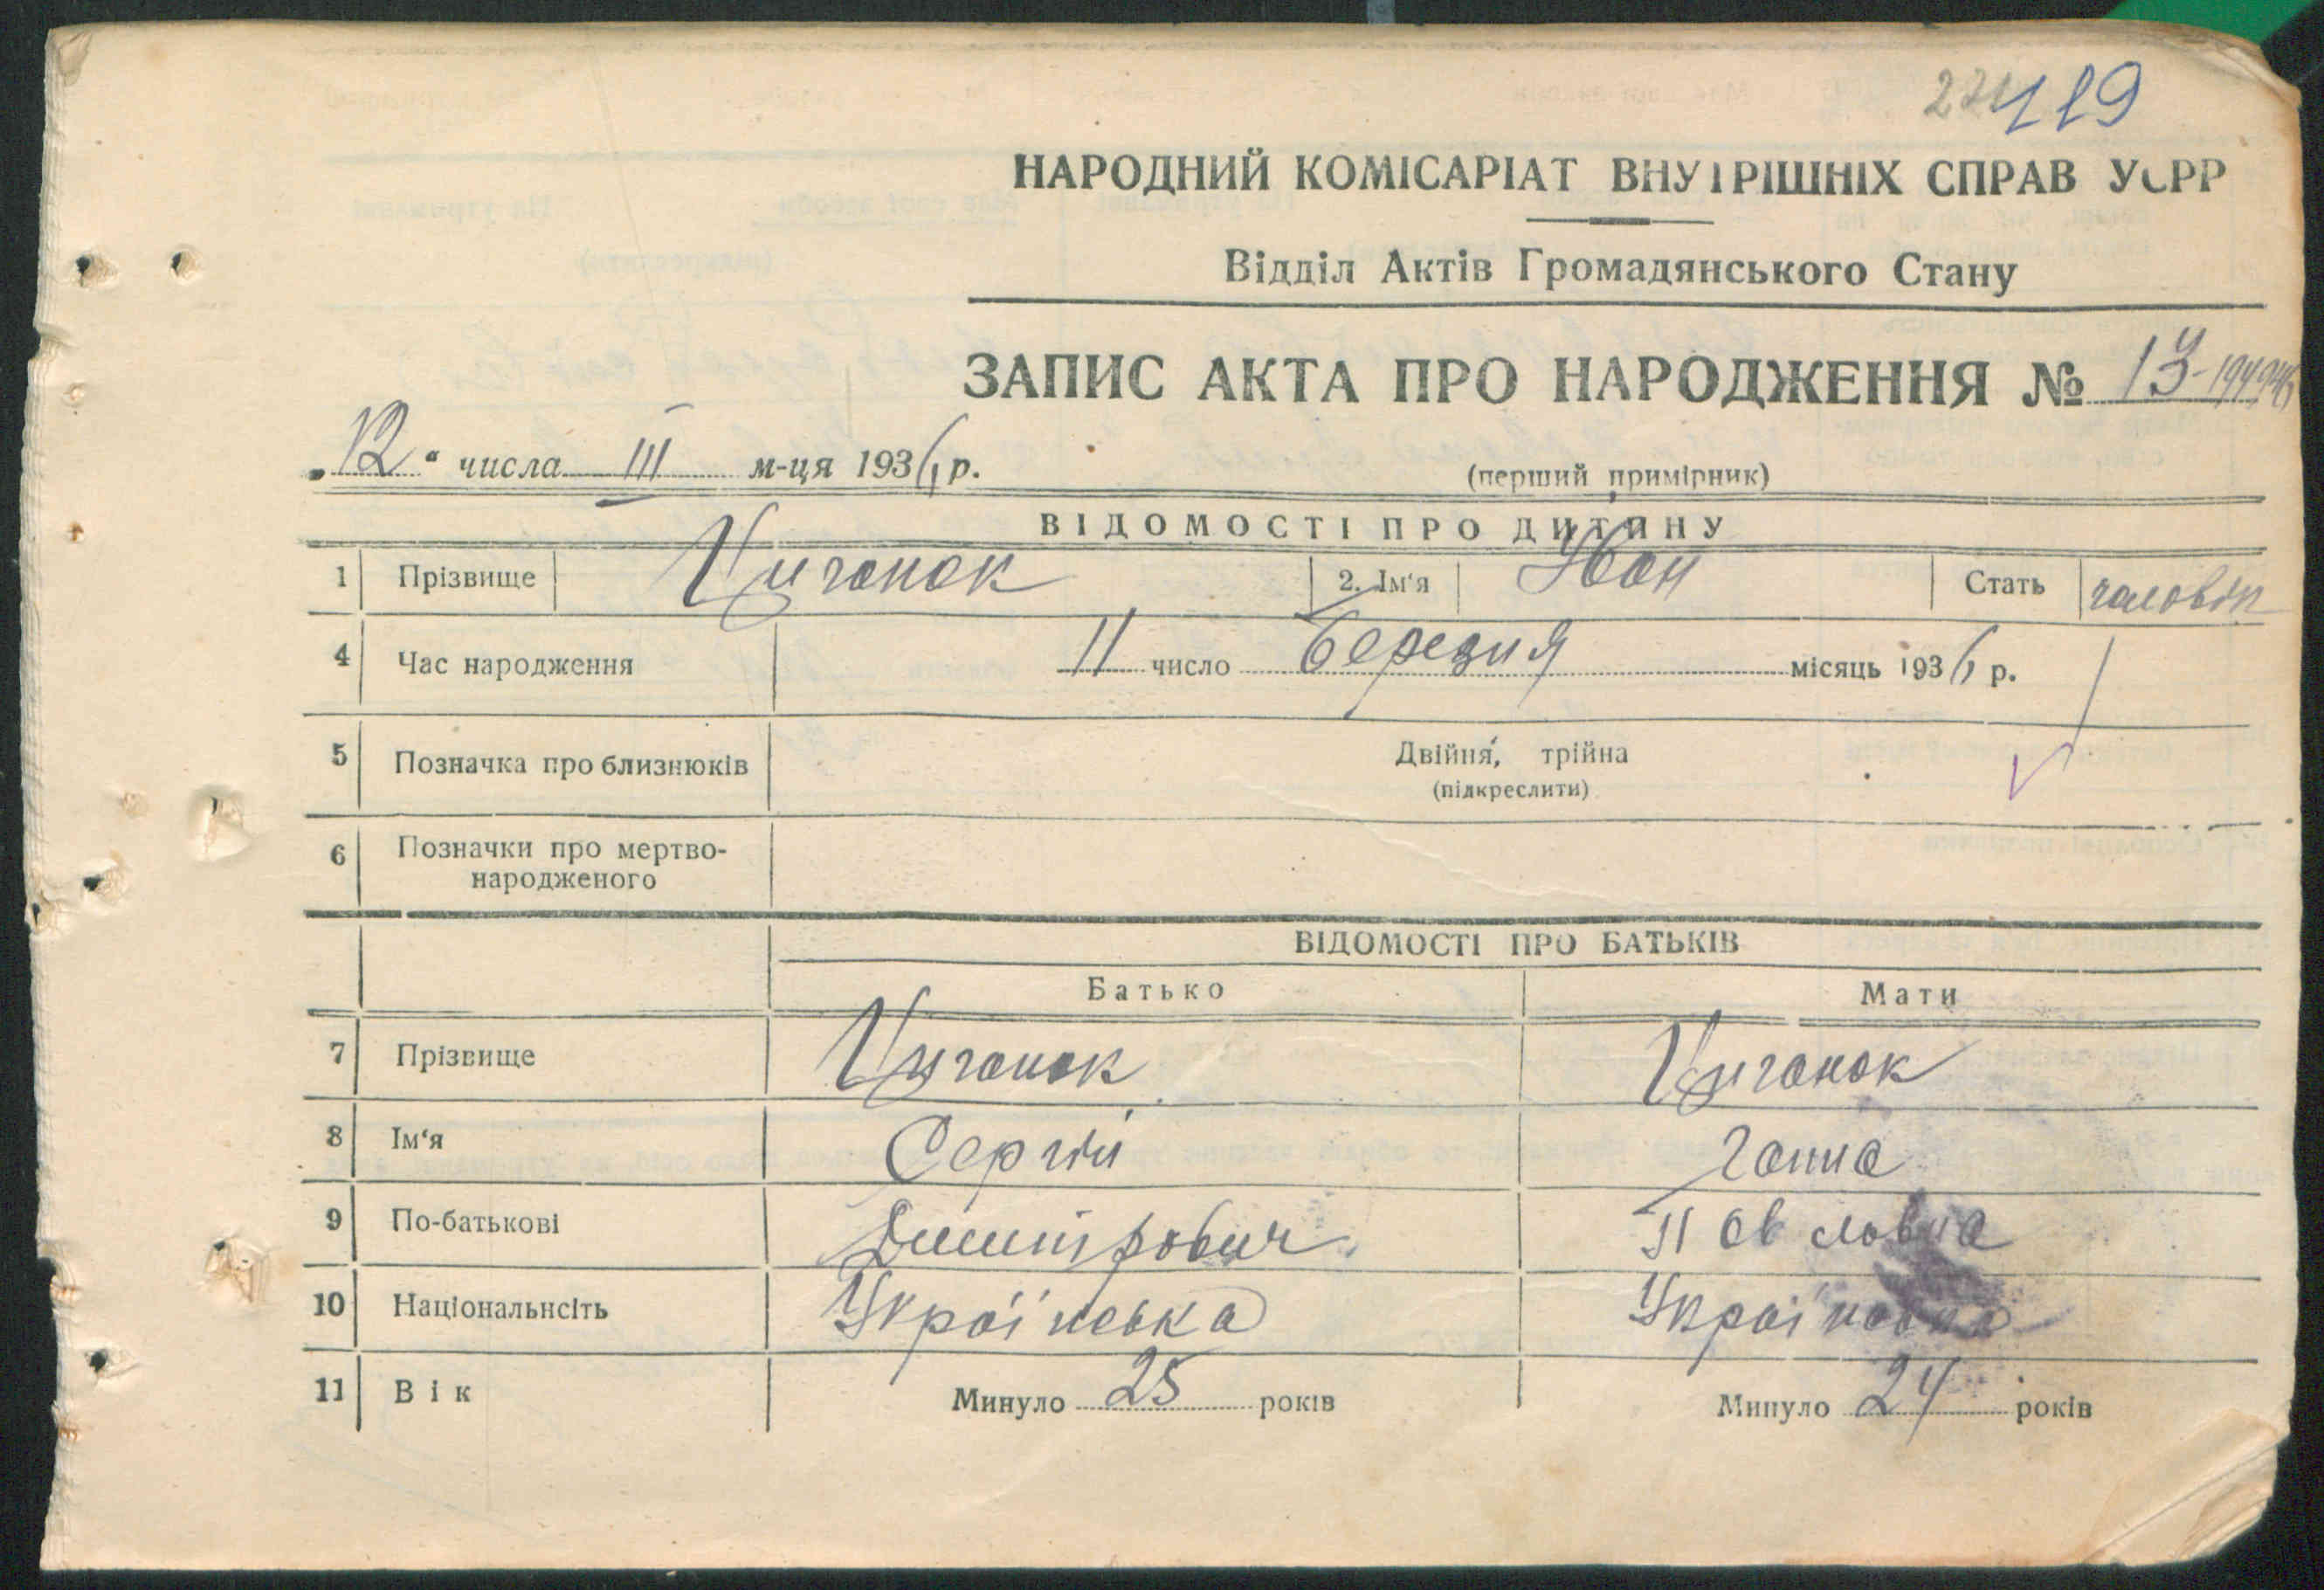 419
НАРОДНИЙ КОМІСАРІАТ ВНУТРІШНІХ СПРАВ УСРР
Відділ Актів Громадянського Стану
ЗАПИС АКТА ПРО НАРОДЖЕННЯ № 13
„12“ числа III м-ця 1936 р.
(перший примірник)
ВІДОМОСТІ ПРО ДИТИНУ
1 Прізвище Циганок 2. Ім‘я Іван Стать чоловік
4 Час народження 11 число березня місяць 1936 р.
5 Позначка про близнюків Двійня, трійна
(підкреслити)
6 Позначки про мертво-
народженого
ВІДОМОСТІ ПРО БАТЬКІВ
Батько Мати
7 Прізвище Циганок Циганок
8 Ім‘я Сергій Ганна
9 По-батькові Дмитрович Павловна
10 Національнсіть Українська Українська
11 Вік Минуло 25 років Минуло 24 років